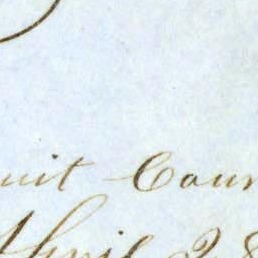 uit Cour
April 28